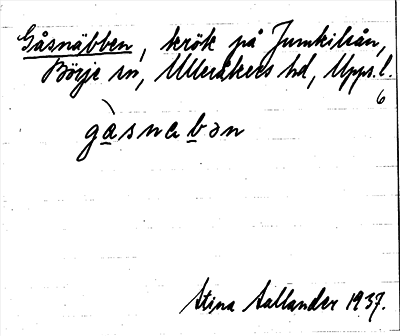 Gåsnäbben, krök på Jumkilsån,
Börje sn, Ulleråkers hd, Upps. l.
6
gåsnabən
Stina Sallander 1937.